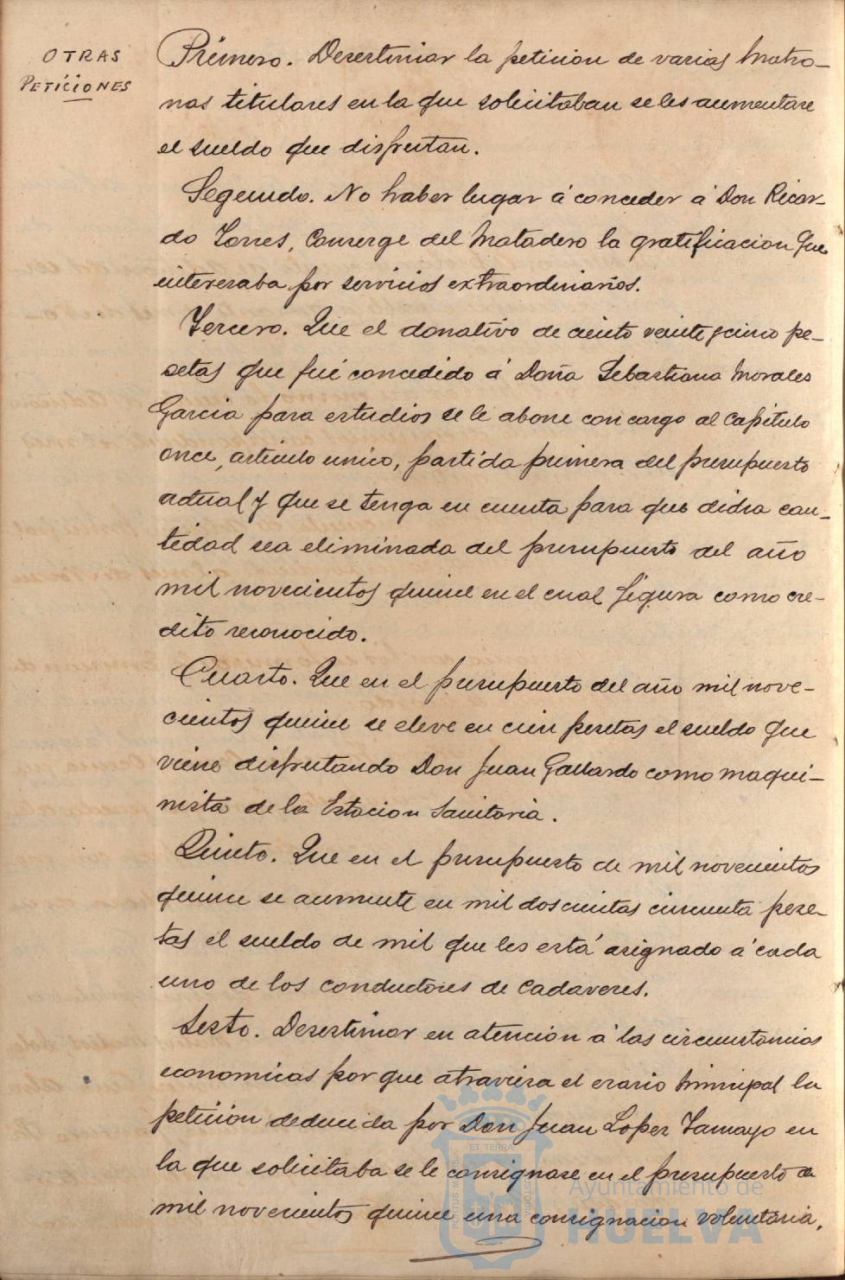 OTRAS
PETICIONES
Primero. Desestimar la petición de varias Matro-
nas titulares en la que solicitaban se les aumentare
el sueldo que disfrutan.
Segundo. No haber lugar á conceder á Don Ricar-
do Torres, Conserge del Matadero la gratificacion que
interesaba por servicios extraordinarios.
Tercero. Que el donativo de ciento veinte y cinco pe-
setas que fué concedido á Doña Sebastiana Morales
Garcia para estudios se le abone con cargo al Capitulo
once, articulo unico, partida primera del presupuesto
actual y que se tenga en cuenta para que dicha can-
tidad sea eliminada del presupuesto del año
mil novecientos quince en el cual figura como cre-
dito reconocido.
Cuarto. Que en el presupuesto del año mil nove-
cientos quince se eleve en cien pesetas el sueldo que
viene disfrutando Don Juan Gallardo como maqui-
nista de la Estacion Sanitaria.
Quinto. Que en el presupuesto de mil novecientos
quince se aumente en mil doscientas cincuenta pese-
tas el sueldo de mil que les está asignado á cada
uno de los conductores de cadaveres.
Sesto. Desestimar en atención á las circunstancias
economicas por que atraviesa el erario Municipal la
petición deducida por Don Juan Lopez Tamayo en
la que solicitaba se le consignase en el presupuesto de
mil novecientos quince una consignacion voluntaria.
Ayuntamiento de
HUELVA